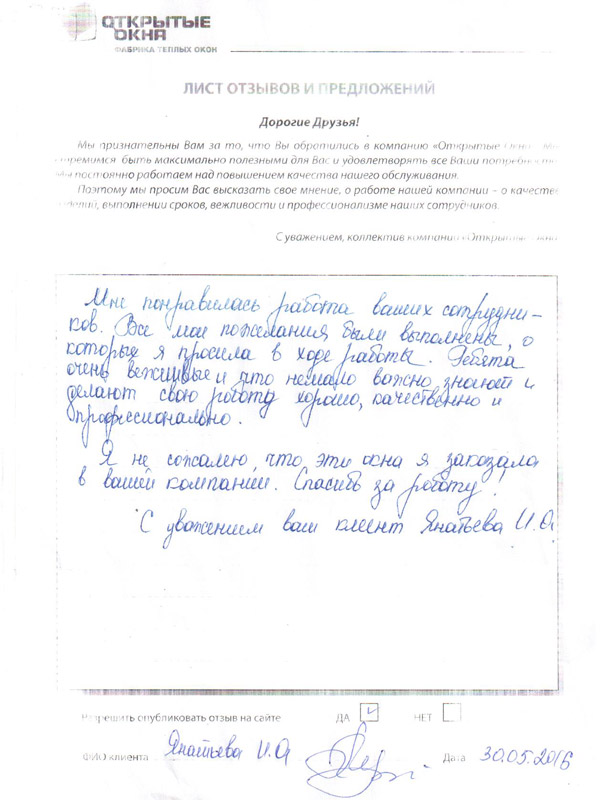 ОТКРЫТЫЕ
ОКНА
ФАБРИКА ТЕПЛЫХ ОКОН
ЛИСТ ОТЗЫВОВ И ПРЕДЛОЖЕНИЙ
Дорогие Друзья!
Мы признательны Вам за то, что Вы обратились в компанию «Открытые Окна». Мы
стремимся быть максимально полезными для Вас и удовлетворять все Ваши потребности.
Мы постоянно работаем над повышением качества нашего обслуживания.
Поэтому мы просим Вас высказать свое мнение, о работе нашей компании – о качестве
изделий, выполнении сроков, вежливости и профессионализме наших сотрудников.
С уважением, коллектив компании «Открытые Окна»
Мне понравилась работа ваших сотрудни-
ков. Все мои пожелания были выполнены, о
которых я просила в ходе работы. Ребята
очень вежливые и что немало важно, знают и
делают свою работу хорошо, качественно и
профессионально.
Я не сожалею, что эти окна я заказала
в вашей компании. Спасибо за работу!
С уважением ваш клиент Янатьева И.А.
Разрешить опубликовать отзыв на сайте ДА НЕТ
ФИО клиента Янатьева И.А Дата 30.05.2016